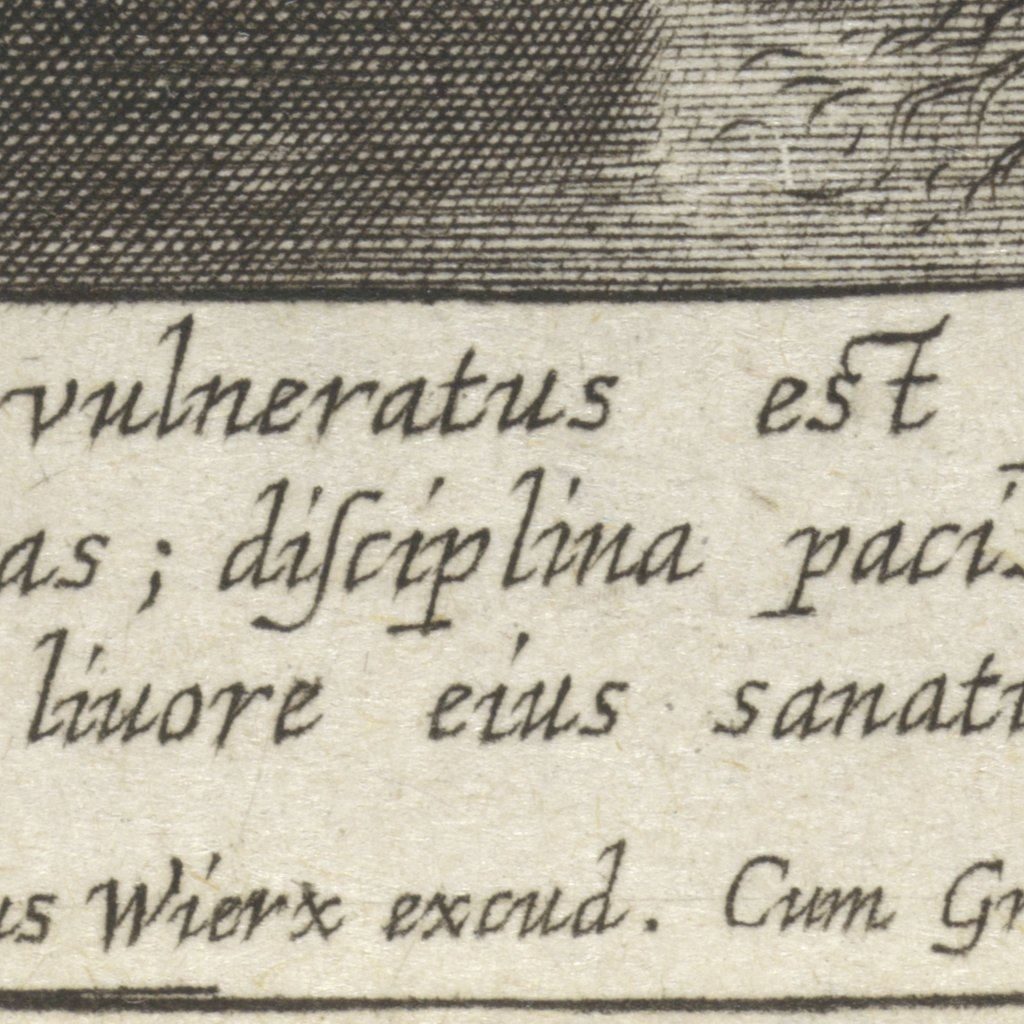 vulneratus est
as; diſciplina paci
liuore eius sanatu
us Wierx excud. Cum Gr